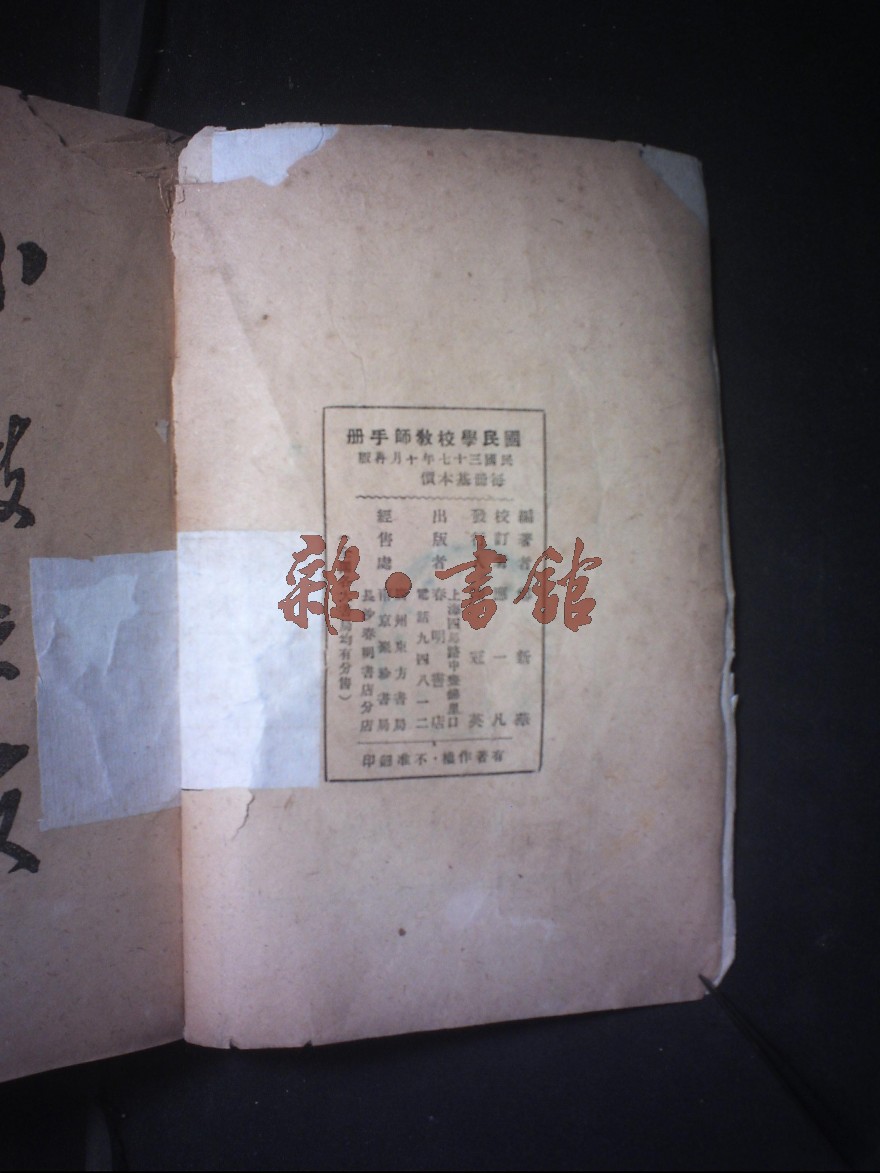 國民學校教師手册
民國三十七年十月再版
每冊基本價
編著者 新華
校訂者 一凡
發 冠英
出版者 春明書店
上海四馬路中 里口
電話九四八一二
經售處
州東方書局
南京 書局
長沙春明書店分店
局均有分售）
有著作權·不准翻印
雜·書舘